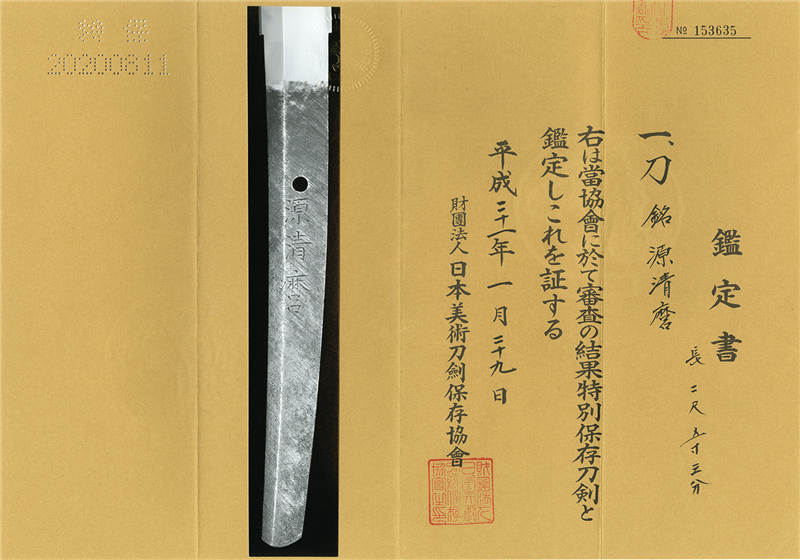 № 153635
鑑定書
一、刀 銘 源清麿
長 二尺五寸三分
右は當協會に於て審査の結果特別保存刀剣と
鑑定しこれを証する
平成二十一年 一月二十九日
財團法人 日本美術刀劍保存協會
源清麿
20200611